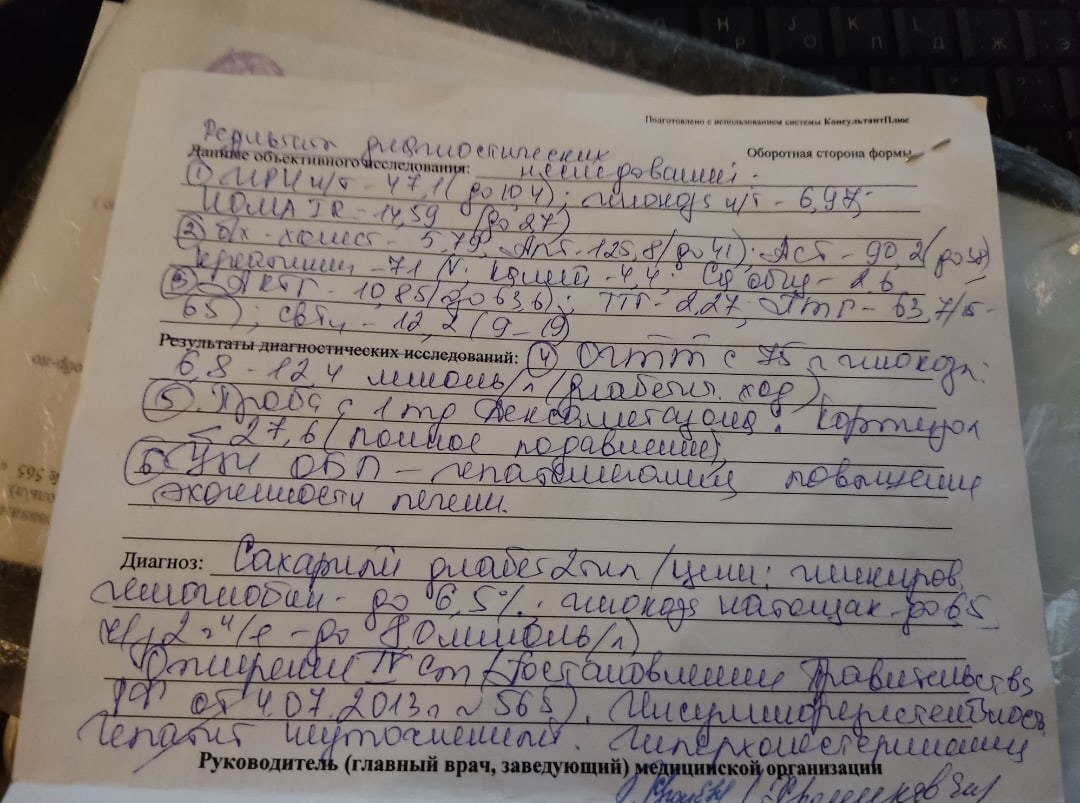 Подготовлено с использованием системы КонсультантПлюс
Оборотная сторона формы
Результаты диагностических
Данные объективного исследования: исследований:
① ИРИ н/т - 47,1 (до 10 4); глюкоза н/т - 6,97;
НОМА IR - 14,59 (до 2 7)
② б/х - холест - 5,79, АЛТ - 125,8 (до 41); АСТ - 90,2 (до
креатинин - 71 N; калий - 4,4; Са общ - 2,6
③ - АКТГ - 10,85 (до 63,6); ТТГ - 2,27; ПТГ - 63,7 /15-
65); свТ4 - 12,2 (9-19)
Результаты диагностических исследований: ④ ОГТТ с 75 г глюкозы:
6,8 - 12,4 ммоль/л (диабетич. ход)
⑤ Проба с 1 mg дексаметазона: Кортизол
< 27,6 (полное подавление)
⑥ УЗИ ОБП - гепатомегалия, повышение
эхогенности печени.
Диагноз: Сахарный диабет 2 тип /цели: гликиров.
гемоглобин - до 6,5%; глюкоза натощак - до 6,5
ч/з 2 ч - до 8,0 ммоль/л)
Ожирение IV ст (Постановление Правительства
РФ от 4.07.2013 г №565). Инсулинорезистентность
Гепатит неуточненный. Гиперхолестеринемия
Руководитель (главный врач, заведующий) медицинской организации
№ 565